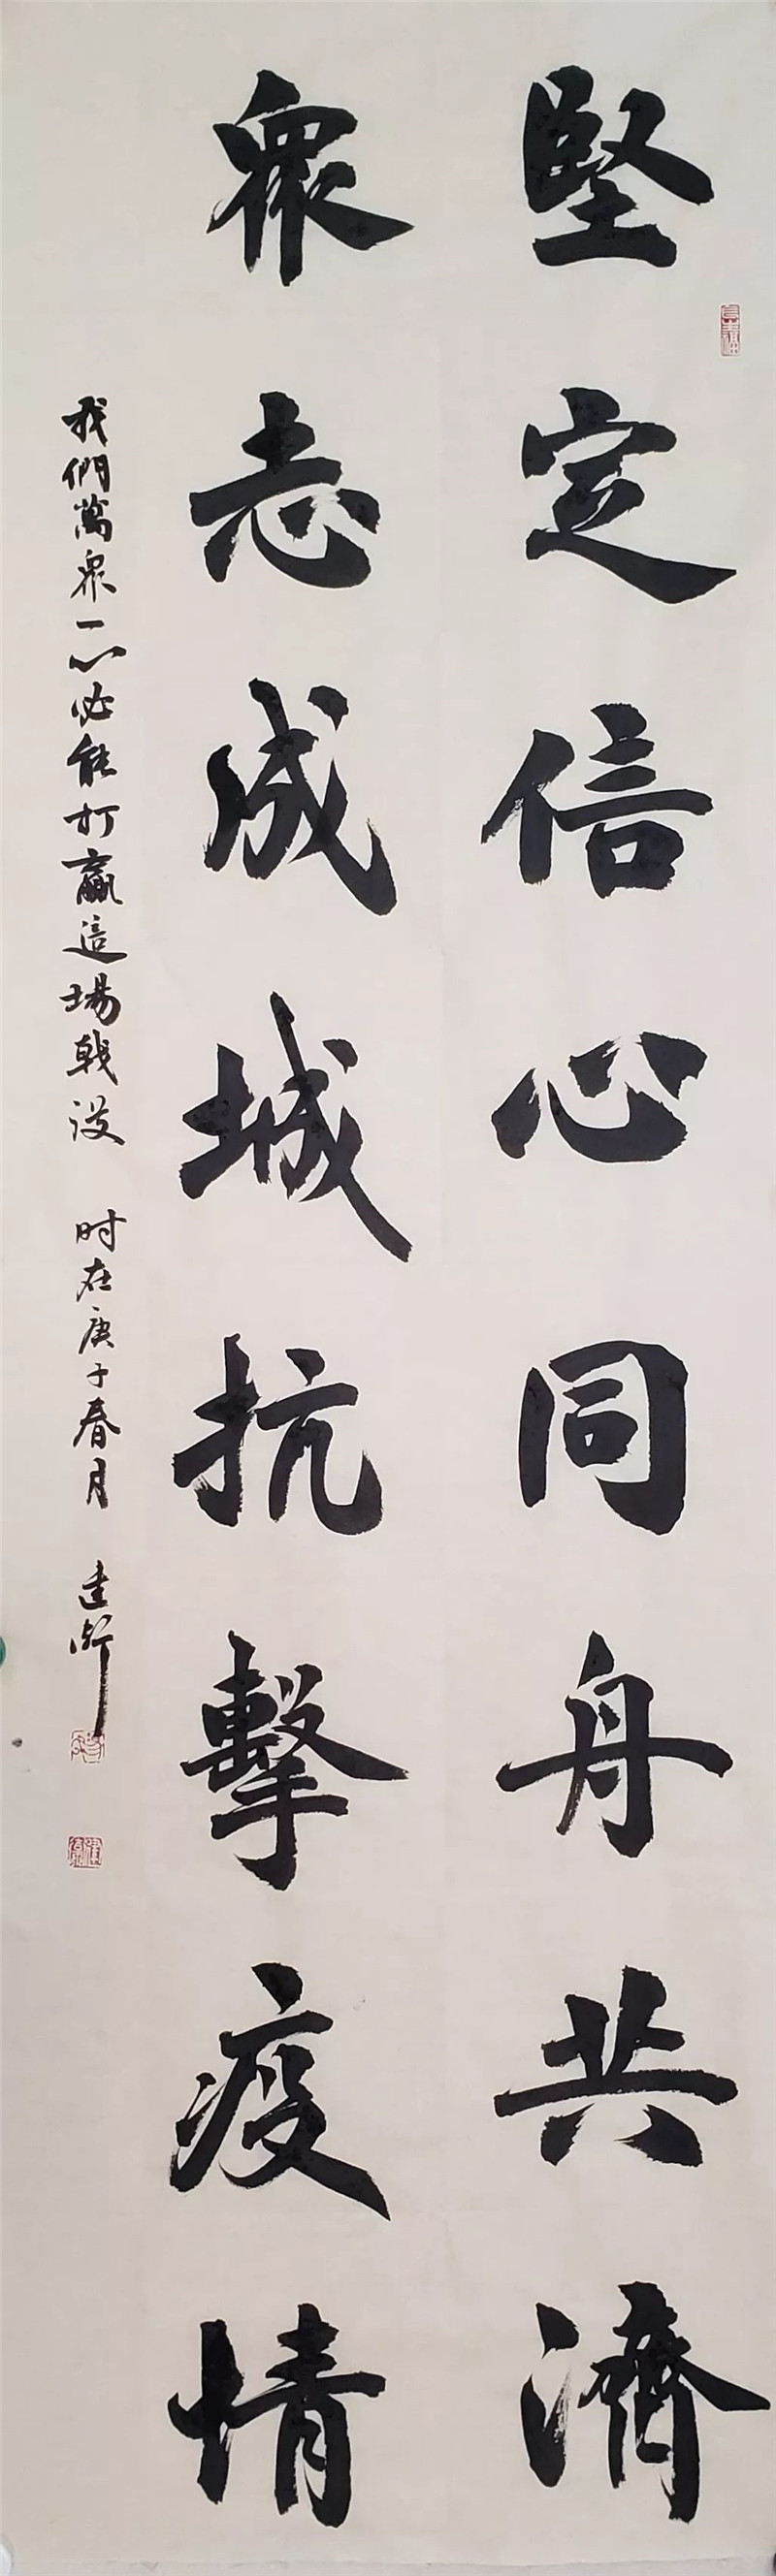 堅定信心同舟共濟
衆志成城抗擊疫情
我們萬衆一心必能打贏這場戰役 时在庚子春月 建